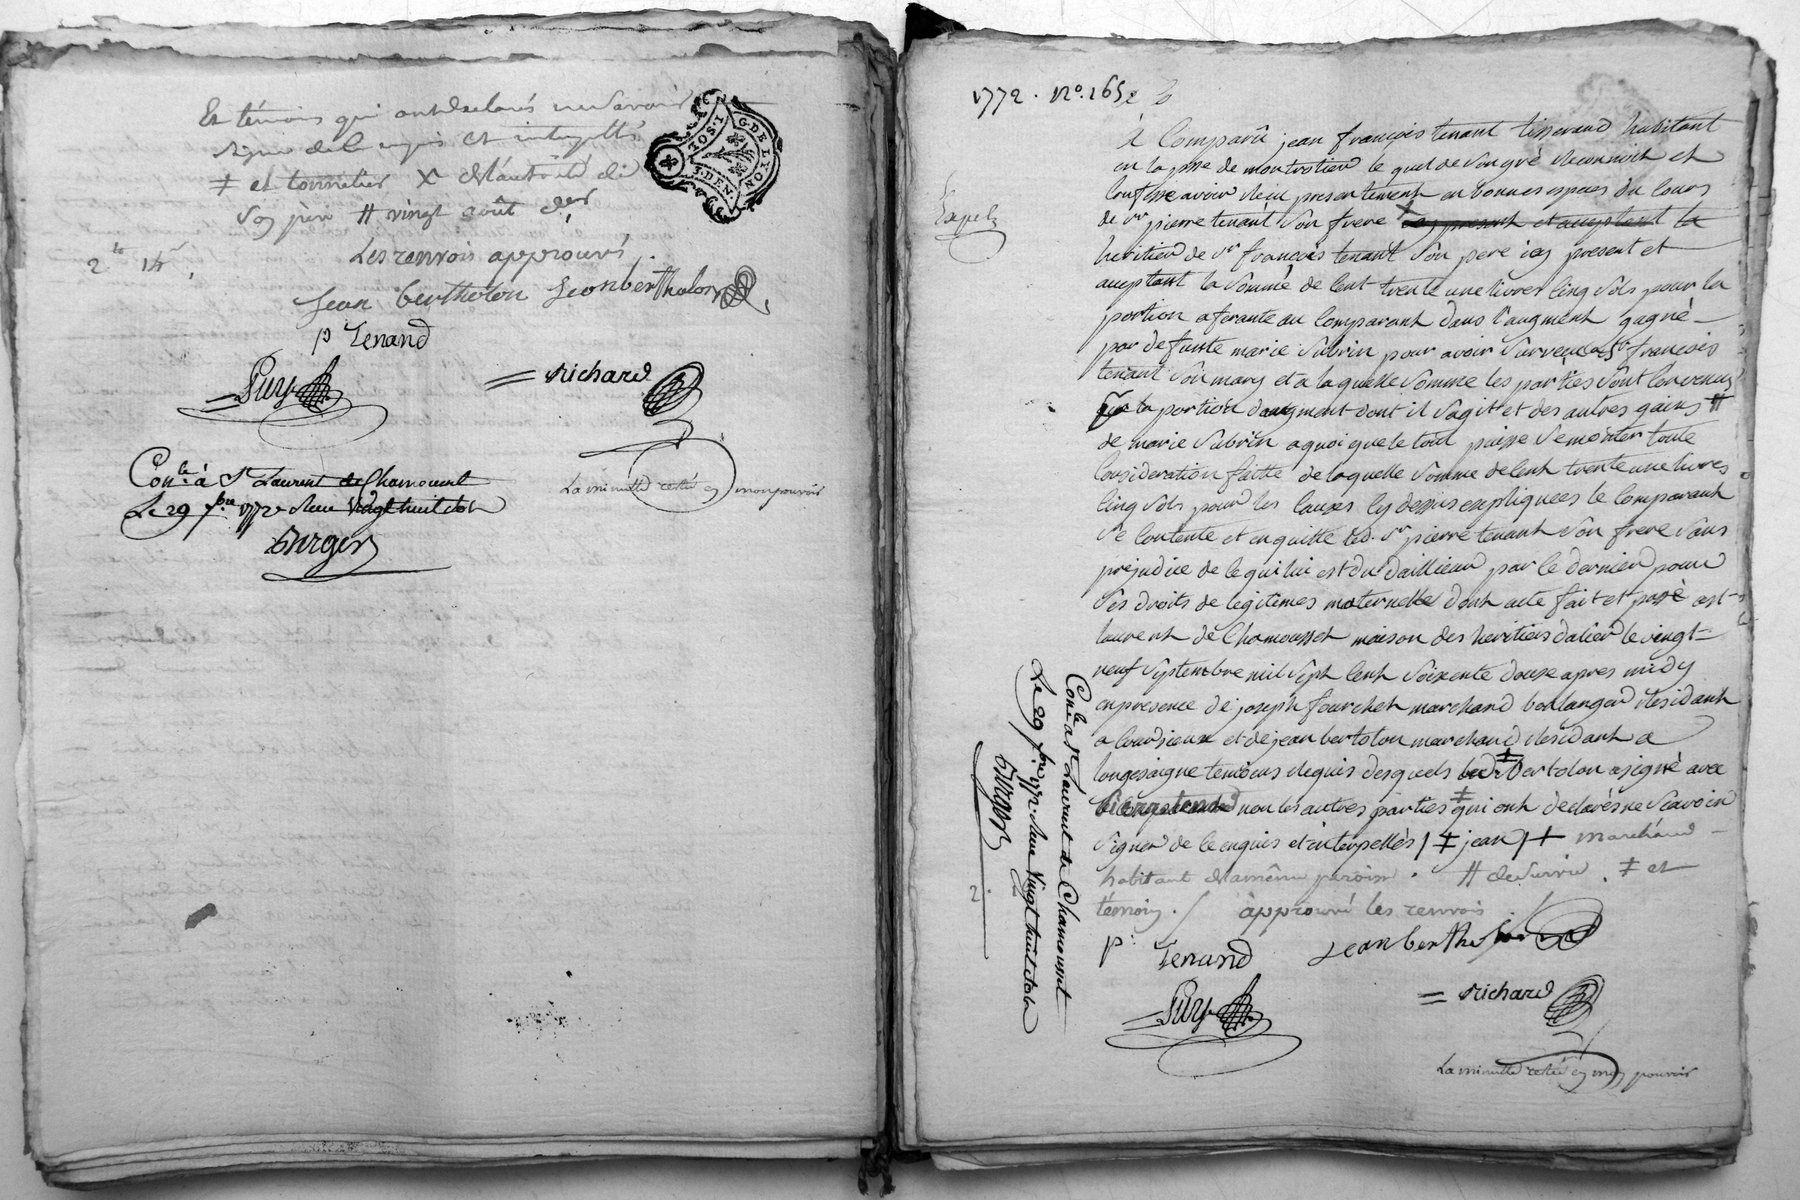 Et témoins qui ont declarés ne savoir
signer de ce enquis et interpellés
‡ et tonnelier X de l'autorité de
son père # vingt août der
Les renvois approuvés
2 14
jean bertholon jeonbertholon
pr Tenand
Puy
Richard
La minutte restée en mon pouvoir
Conle. à St Laurent de Chamousset
Le 29 7bre 1772 Reçu Vingt huit sols
Burger
G. DE LYON
1. SOL
3. DEN.
1772. No. 165
A Comparû jean françois tenant tisserand habitant
en la psse de montrotier le quel de son gré reconnoit et
confesse avoir reçu presentement en bonnes especes du cours
de sr pierre tenant son frere icy present et acceptant la
heritier de sr françois tenant son pere icy present et
acceptant la somme de cent trente une livres cinq sols pour la
portion aferante au Comparant dans l'augment gagné
par defunte marie subrin pour avoir survecu a sr francois
tenant son mary et a la quelle somme les parties sont convenus
la portion daugment dont il sagit et des autres gains #
de marie subrin a quoi que le tout puisse se monter toute
Consideration faitte de laquelle somme de cent trente une livres
cinq sols pour les causes cy dessus expliquees le comparant
se contente et en quitte led. sr pierre tenant son frere sans
prejudice de ce qui lui est du dailleurs par le dernier pour
ses droits de legitimes maternelle dont acte fait et passé a st
laurent de Chamousset maison des heritiers dalier le vingt
neuf septembre mil sept cent soixente douse apres midy
en presence de joseph fourchet marchand boulanger residant
a courzieux et de jean bertolon marchand residant a
longesaigne temoins requis desquels led ‡ bertolon a signé avec
pierre tenand non les autres parties ‡ qui ont declarés ne scavoir
signer de ce enquis et interpellés / ‡ jean / + marchand
habitant de la même paroisse. # de survie. ‡ et
témoin. / approuvé les renvois
pr. Tenand
jeanbertholon
Puy
Richard
La minutte restée en mon pouvoir
Conle. a St Laurent de Chamousset
Le 29 7bre 1772 Reçu Vingt huit sols
Burger
2